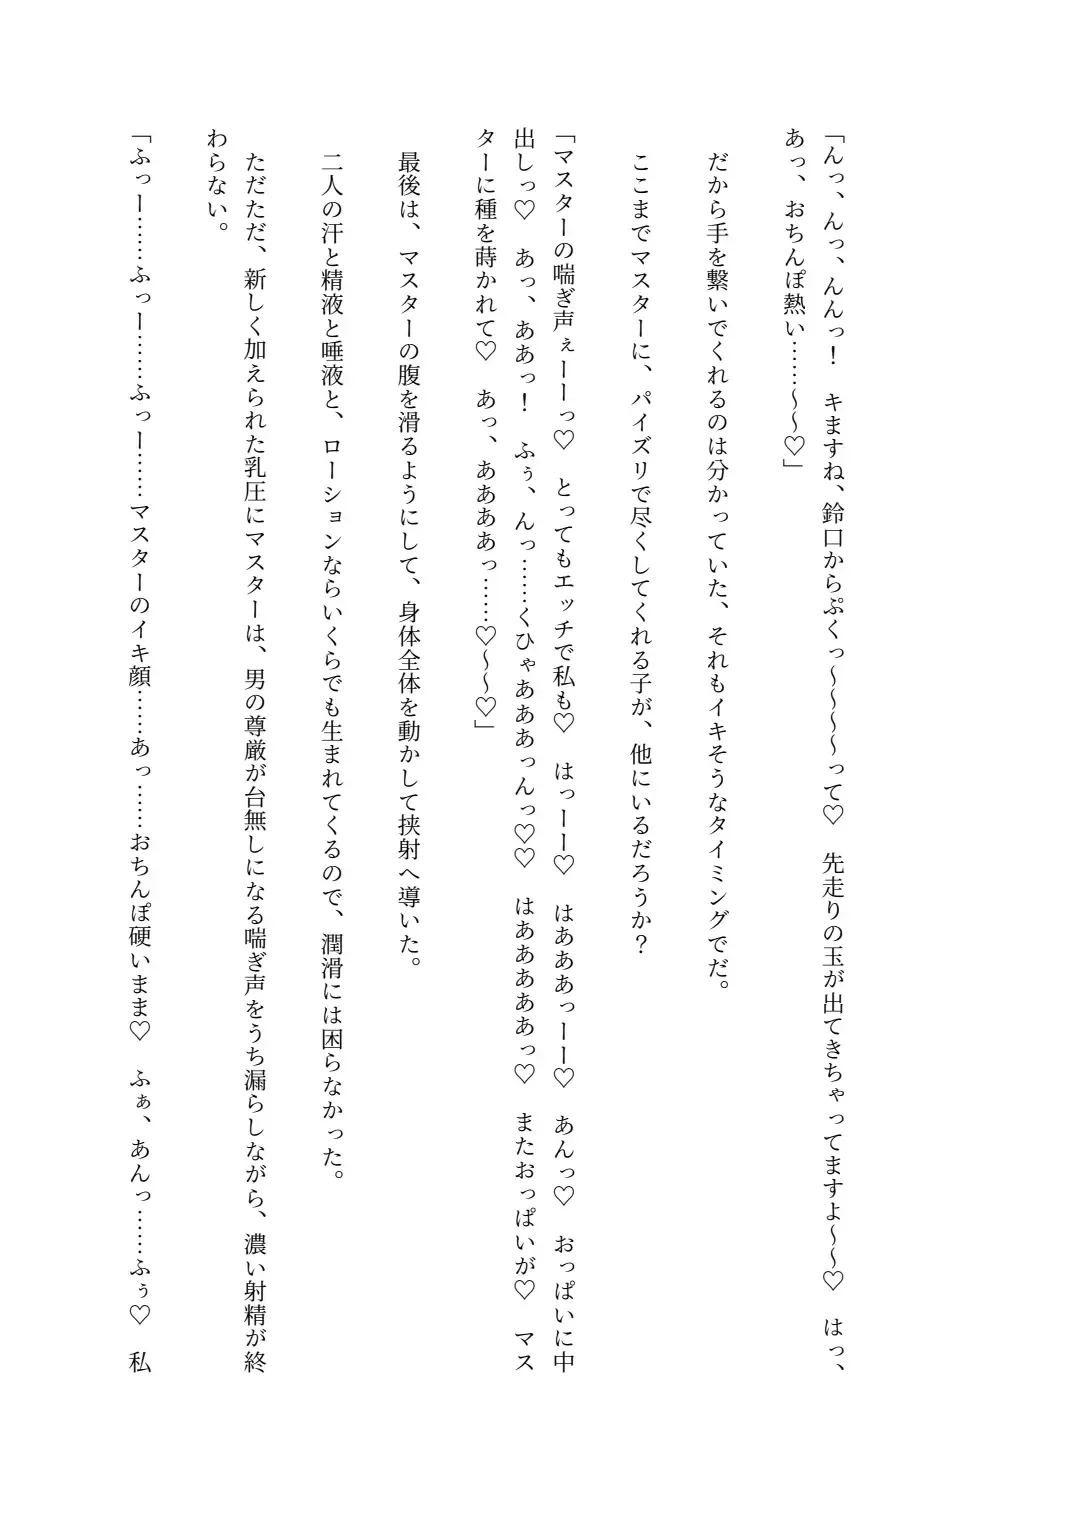 「んっ、んっ、んんっ！　キますね、鈴口からぷくっ～～～～って♡　先走りの玉が出てきちゃってますよ～～♡　はっ、
あっ、おちんぽ熱い……～～♡」
だから手を繋いでくれるのは分かっていた、それもイキそうなタイミングでだ。
ここまでマスターに、パイズリで尽くしてくれる子が、他にいるだろうか？
「マスターの喘ぎ声ぇーーっ♡　とってもエッチで私も♡　はっーー♡　はあああっーー♡　あんっ♡　おっぱいに中
出しっ♡　あっ、ああっ！　ふぅ、んっ……くひゃあああっんっ♡♡　はああああああっ♡　またおっぱいが♡　マス
ターに種を蒔かれて♡　あっ、ああああっ……♡～～♡」
最後は、マスターの腹を滑るようにして、身体全体を動かして挟射へ導いた。
二人の汗と精液と唾液と、ローションならいくらでも生まれてくるので、潤滑には困らなかった。
ただただ、新しく加えられた乳圧にマスターは、男の尊厳が台無しになる喘ぎ声をうち漏らしながら、濃い射精が終
わらない。
「ふっー……ふっー……ふっー……マスターのイキ顔……あっ……おちんぽ硬いまま♡　ふぁ、あんっ……ふぅ♡　私